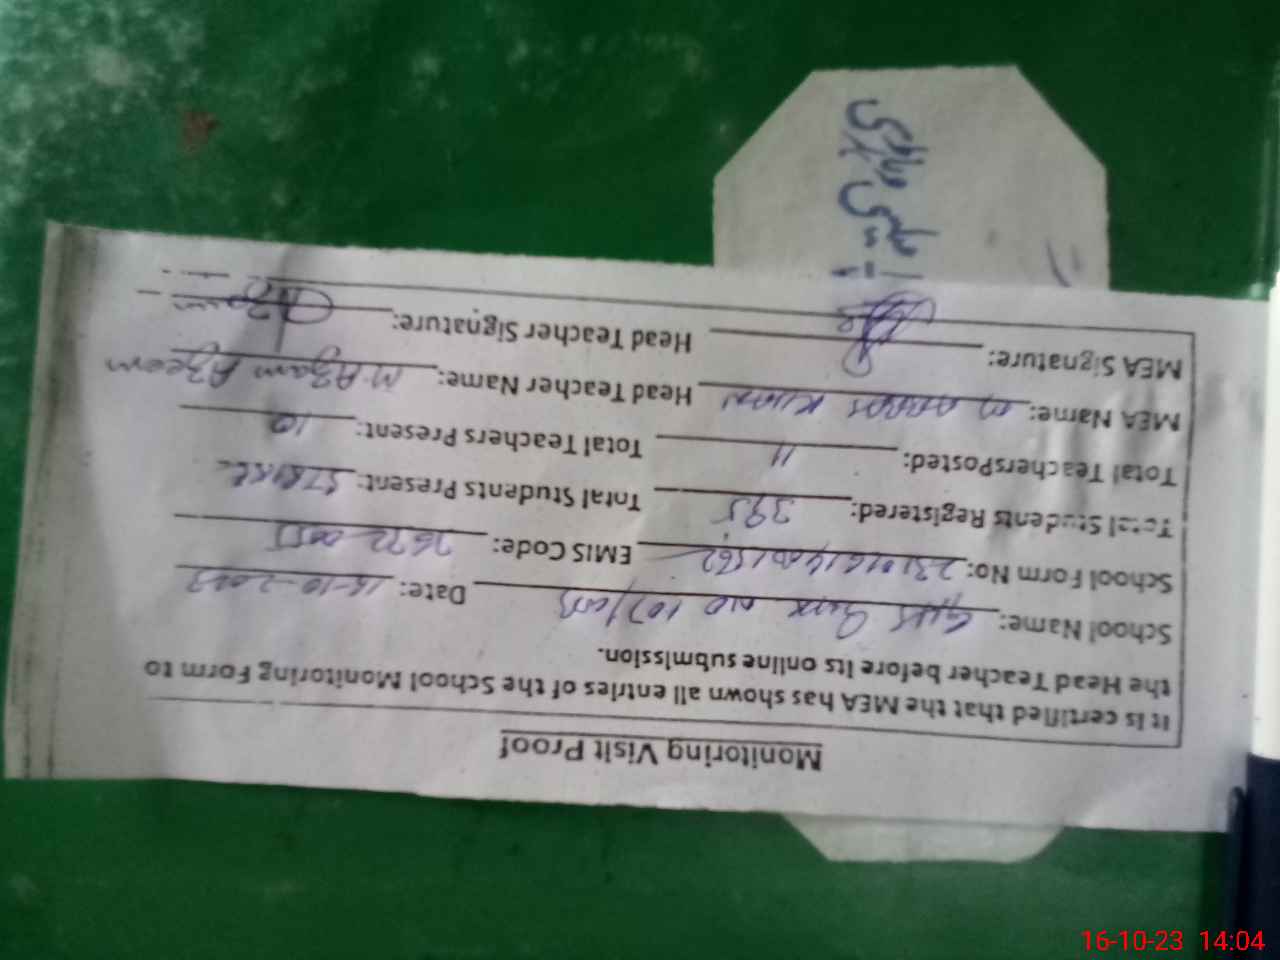 Monitoring Visit Proof
It is certified that the MEA has shown all entries of the School Monitoring Form to
the Head Teacher before its online submission.
School Name: GHS NO 107/ Date: 16-10-2023
School Form No: EMIS Code:
Total Students Registered: 395 Total Students Present: STRIKE
Total TeachersPosted: 11 Total Teachers Present: 10
MEA Name: M ABBAS KHAN Head Teacher Name: M. Azam Azeem
MEA Signature: Head Teacher Signature:
16-10-23 14:04